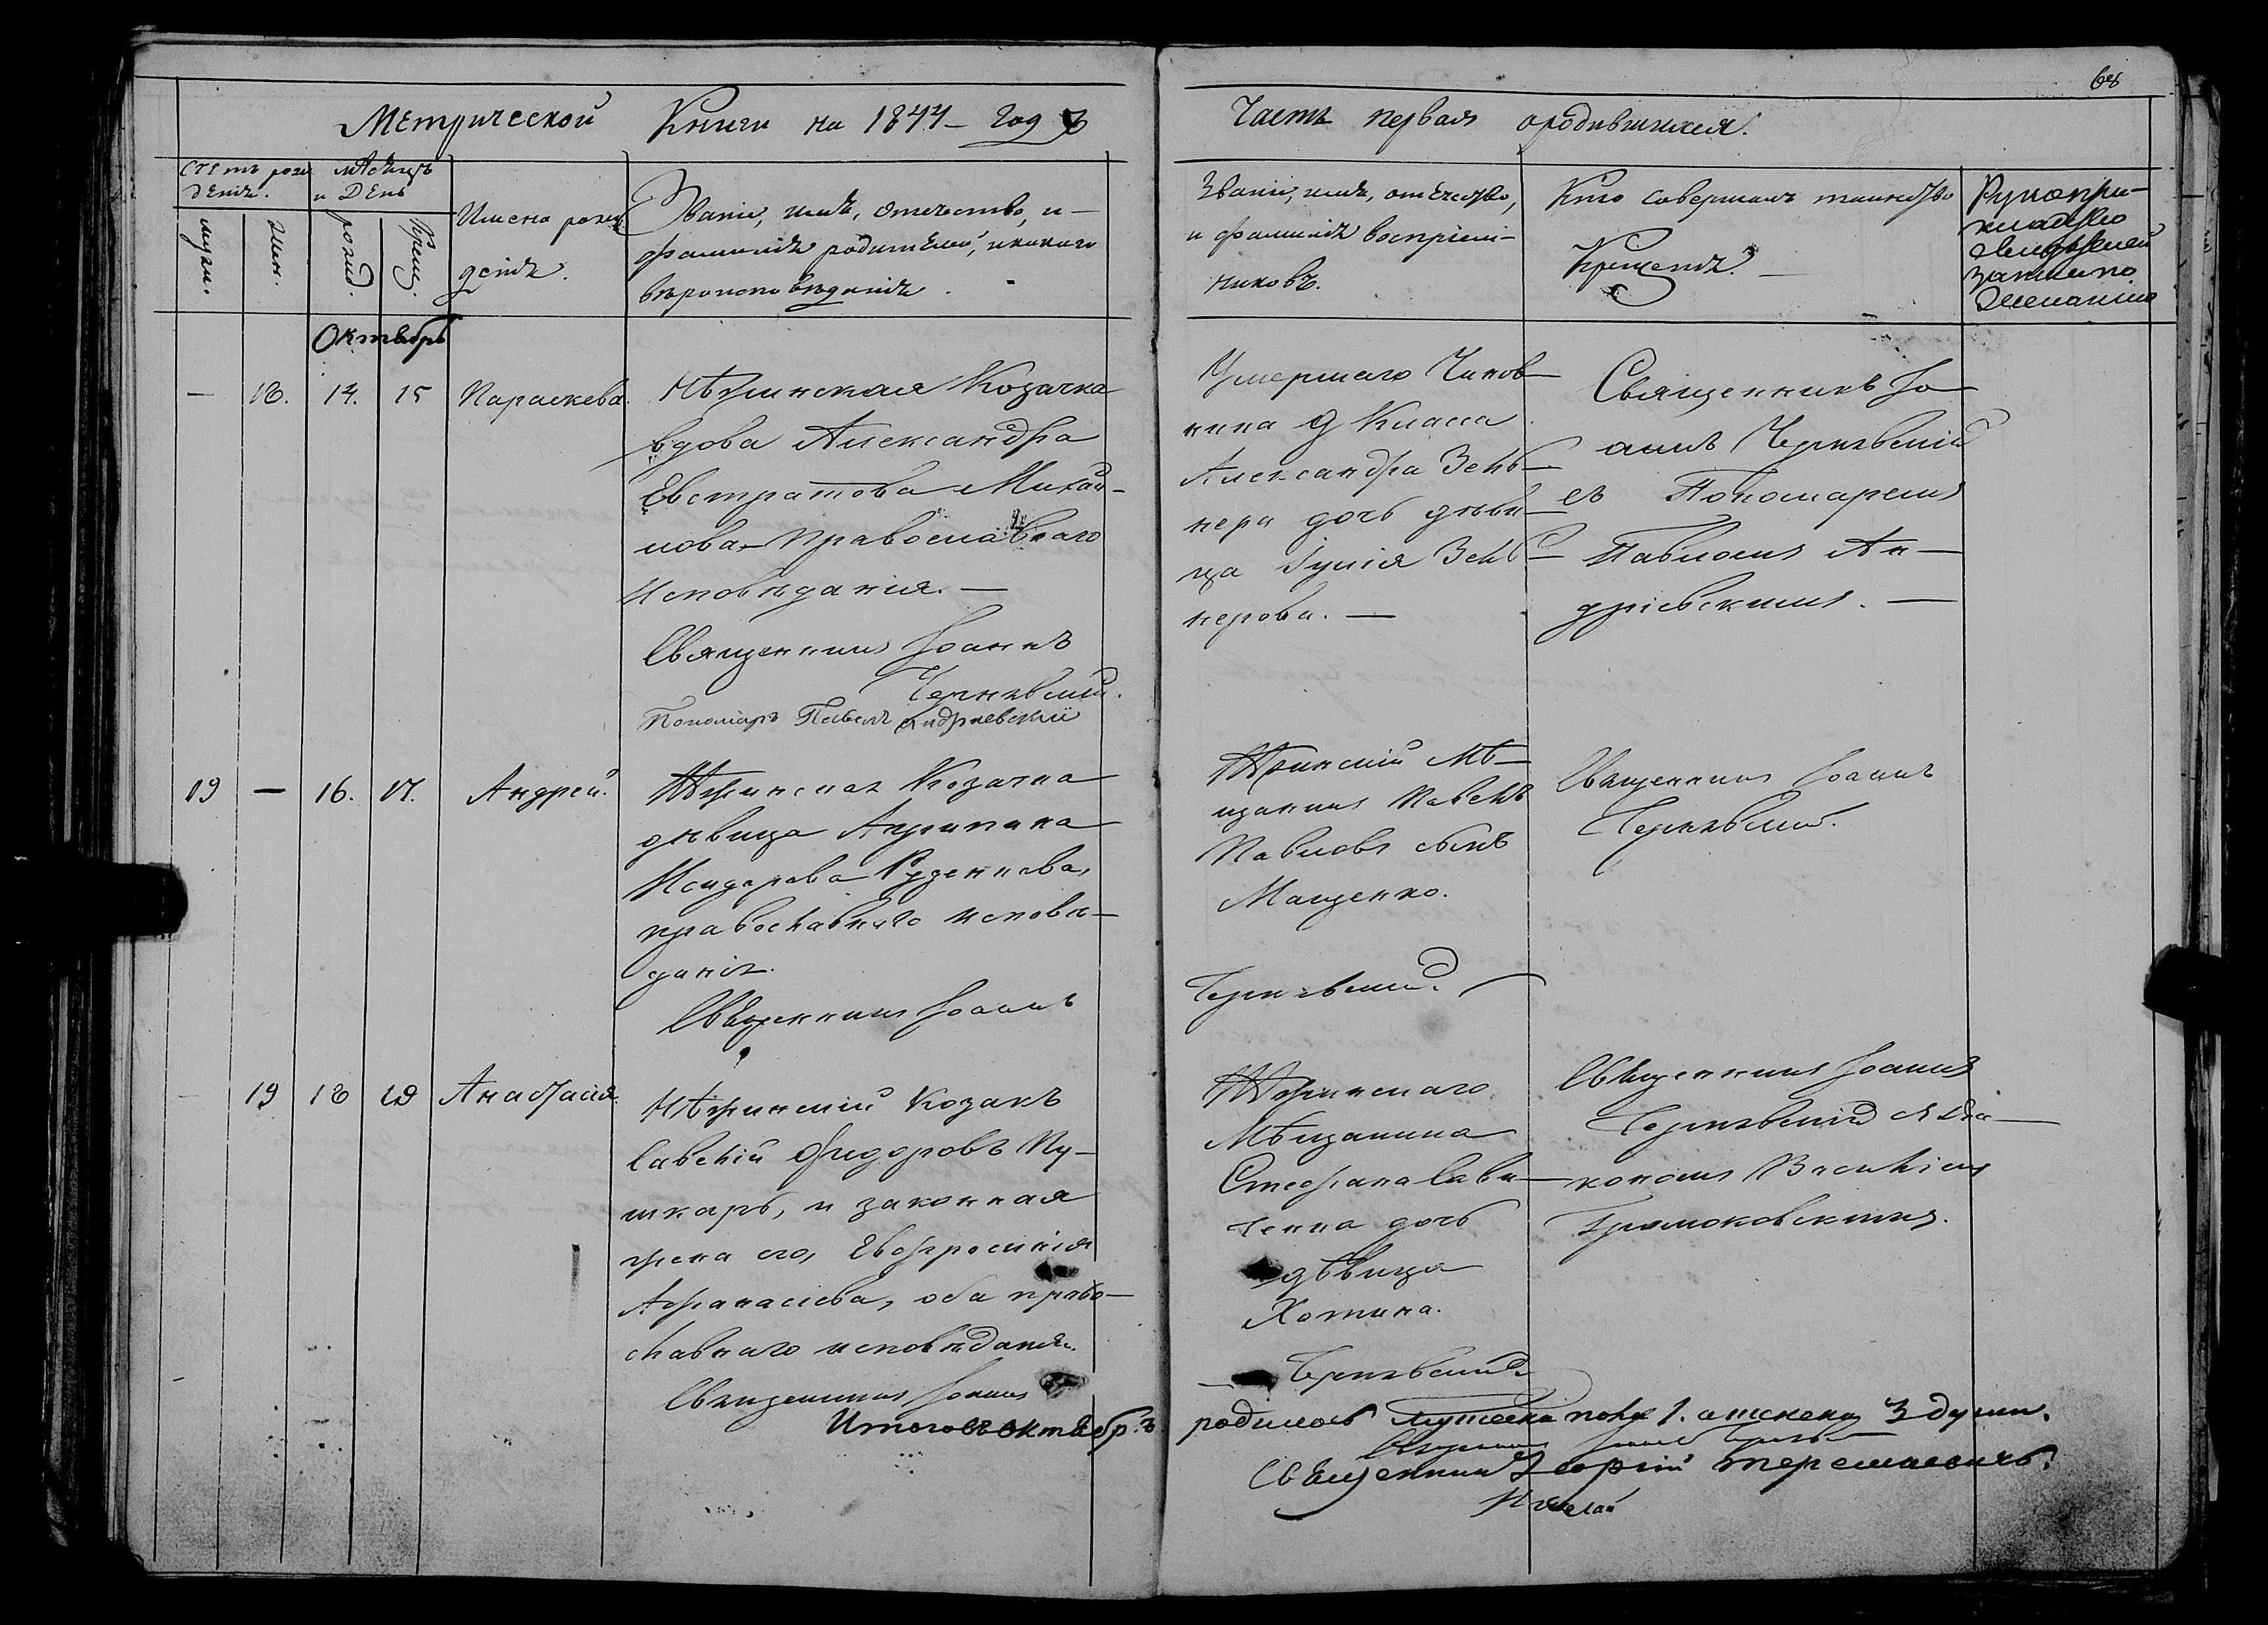 68
Метрической Книги на 1844 Год
Часть первая о родившихся.
Счетъ рож
денія.
мѣсяцъ
и День
муж.
жен.
рожд.
Крещ.
Имена рож
денія.
Званіе, имя, отечество, и
фамилія родителей, и какого
вѣроисповѣданія.
Званіе, имя, отечество,
и фамилія воспріем-
никовъ.
Кто совершалъ таинство
Крещенія.
Рукопри-
кладство
свидѣтелей
записи по
Желанію
Октябрь
— 18. 14. 15 Параскева.
Нѣжинская Козачка
вдова Александра
Евстратова Михай-
лова Православнаго
Исповѣданія. —
Священникъ Іоаннъ
Чернявскій.
Пономарь Павелъ Андриевскій
Умершаго Чинов-
ника 9 Класса
Александра Зень-
нера дочь дѣви-
ца Іулія Зень-
нерова. —
Священникъ Іо-
аннъ Чернявскій
съ Пономаремъ
Павломъ Ан-
дріевскимъ. —
19 — 16. 17. Андрей.
Нѣжинская Козачка
дѣвица Агрипина
Исидорова Руденкова,
православнаго исповѣ-
данія.
Священникъ Іоаннъ
Нѣжинскій Мѣ-
щанинъ Павелъ
Павловъ сынъ
Мащенко.
Чернявскій.
Священникъ Іоаннъ
Чернявскій.
19 18 19 Анастасія.
Нѣжинскій Козакъ
Савелій Фидоровъ Пу-
шкарь, и законная
жена его, Евфросинія
Афанасіева, оба право-
славнаго исповѣданія.
Священникъ Іоаннъ
Нѣжинскаго
Мѣщанина
Стефана Сави-
ченка дочь
дѣвица
Хотина.
Чернявскій
Священникъ Іоаннъ
Чернявскій с Діа-
кономъ Василіемъ
Громоковскимъ.
Итого въ октябрѣ
родилось мужеска пола 1. а женска 3 души.
Священникъ Іоаннъ
Священникъ Георгій